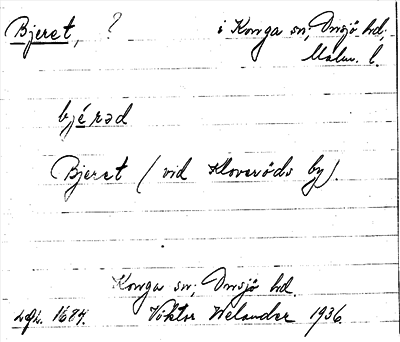 Bjeret, ? i Konga sn; Onsjö hd;
Malm. l.
bjérəd
Bjeret (vid Kloveröds by).
Konga sn; Onsjö hd.
1684. Viktor Welander 1936.